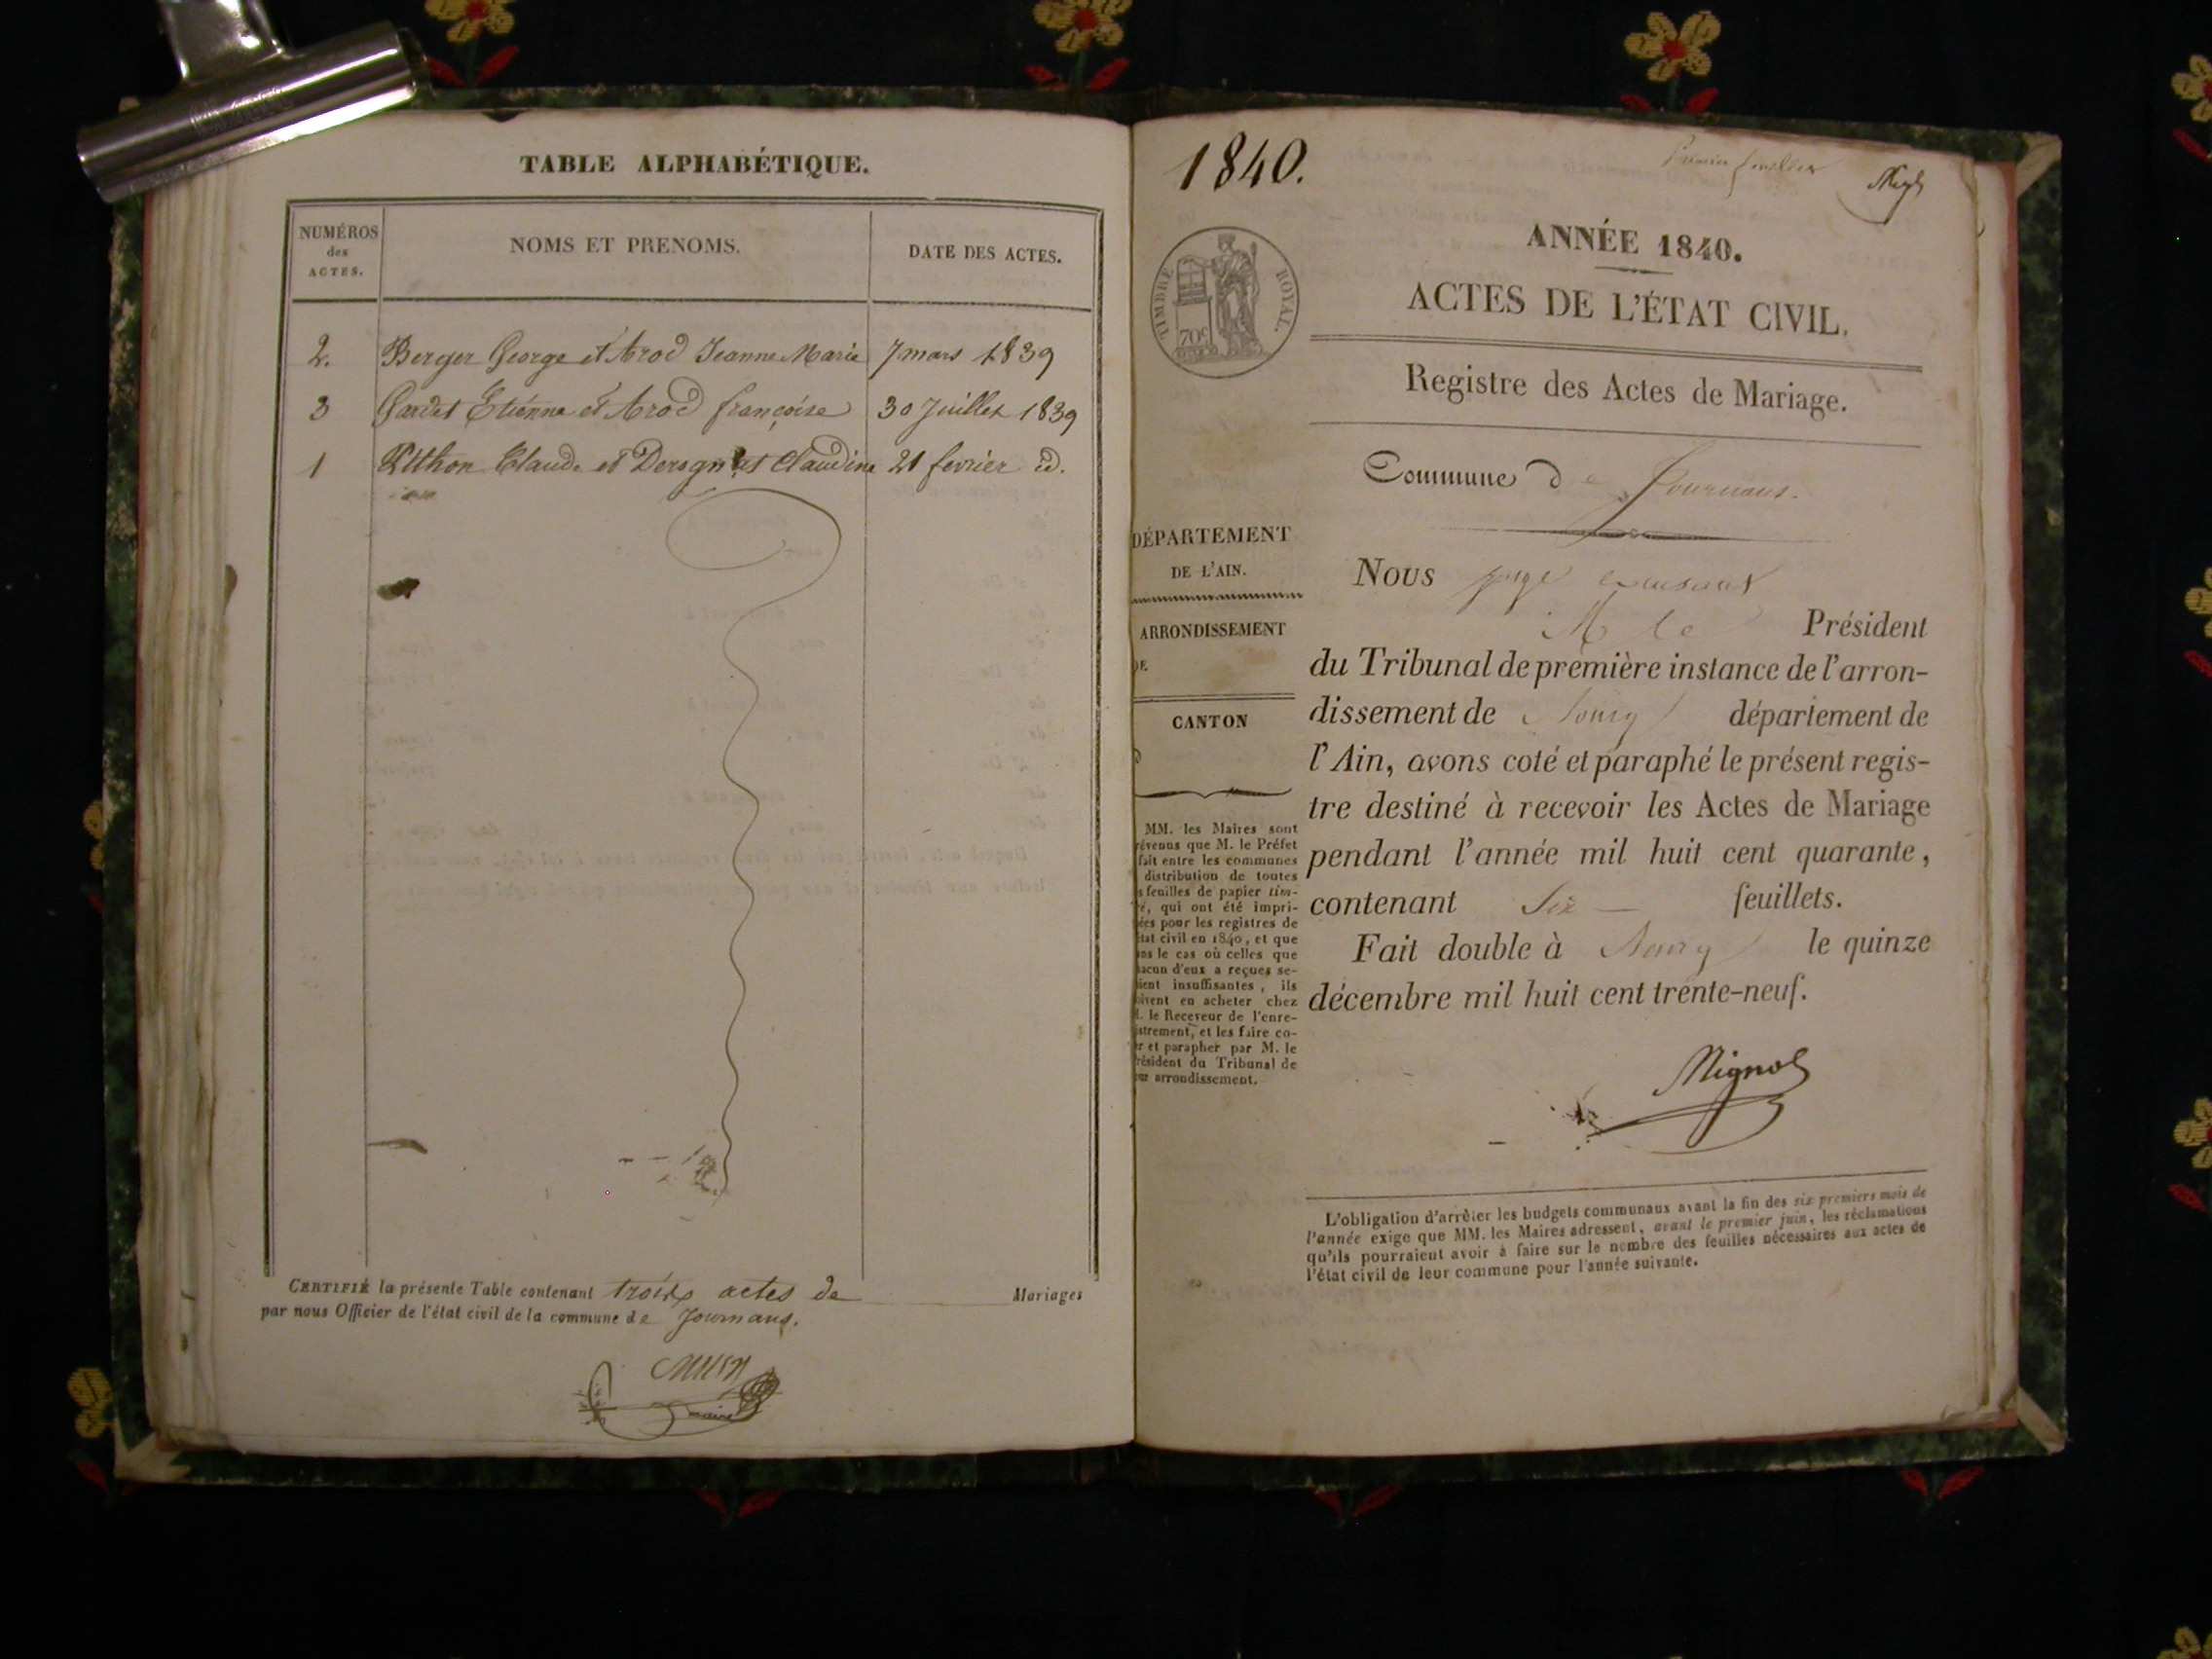 TABLE ALPHABÉTIQUE.
NUMÉROS
des
ACTES.
NOMS ET PRENOMS.
DATE DES ACTES.
2. Berger George et Arod Jeanne Marie 7 mars 1839
3 Gardet Etiénne et Arod françoise 30 Juillet 1839
1 Claude et Claudine 21 fevrier id.
CERTIFIÉ la présente Table contenant trois actes de Mariages
par nous Officier de l'état civil de la commune de Journans.
maire
1840.
Premier feuillet
TIMBRE ROYAL.
70c
ANNÉE 1840.
ACTES DE L'ÉTAT CIVIL.
Registre des Actes de Mariage.
Commune de Journans.
DÉPARTEMENT
DE L'AIN.
ARRONDISSEMENT
DE
CANTON
MM. les Maires sont
révenus que M. le Préfet
fait entre les communes
distribution de toutes
s feuilles de papier tim-
ré, qui ont été impri-
ées pour les registres de
état civil en 1840, et que
ans le cas où celles que
hacun d'eux a reçues se-
aient insuffisantes, ils
oivent en acheter chez
M. le Receveur de l'enre-
istrement, et les faire co-
er et parapher par M. le
résident du Tribunal de
eur arrondissement.
Nous juge
M le Président
du Tribunal de première instance de l'arron-
dissement de Bourg département de
l'Ain, avons coté et paraphé le présent regis-
tre destiné à recevoir les Actes de Mariage
pendant l'année mil huit cent quarante,
contenant Six feuillets.
Fait double à Bourg le quinze
décembre mil huit cent trente-neuf.
Mignot
L'obligation d'arrêter les budgets communaux avant la fin des six premiers mois de
l'année exige que MM. les Maires adressent, avant le premier juin, les réclamations
qu'ils pourraient avoir à faire sur le nombre des feuilles nécessaires aux actes de
l'état civil de leur commune pour l'année suivante.